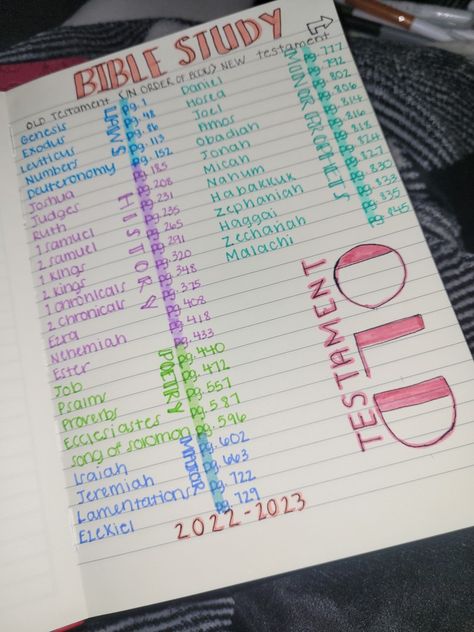 BIBLE STUDY
OLD Testament (IN ORDER OF BOOK) NEW testament
Genesis pg. 1
Exodus pg. 48
Leviticus pg. 86
Numbers pg. 113
Deuteronomy pg. 152
LAWS
Joshua pg. 185
Judges pg. 208
Ruth pg. 231
1 samuel pg. 235
2 samuel pg. 265
1 Kings pg. 291
2 Kings pg. 320
1 chronicals pg. 348
2 chronicals pg. 375
Ezra pg. 408
Nehemiah pg. 418
Ester pg. 433
HISTORY
Job pg. 440
Psalms pg. 472
Proverbs pg. 557
Ecclesiastes pg. 587
Song of solomon pg. 596
POETRY
Isaiah pg. 602
Jeremiah pg. 663
Lamentations pg. 722
Ezekiel pg. 729
MAJOR
Daniel pg. 777
Hosea pg. 792
Joel pg. 802
Amos pg. 806
Obadiah pg. 814
Jonah pg. 816
Micah pg. 818
Nahum pg. 824
Habakkuk pg. 827
Zephaniah pg. 830
Haggai pg. 833
Zechariah pg. 835
Malachi pg. 845
MINOR PROPHETS
OLD
TESTAMENT
2022-2023